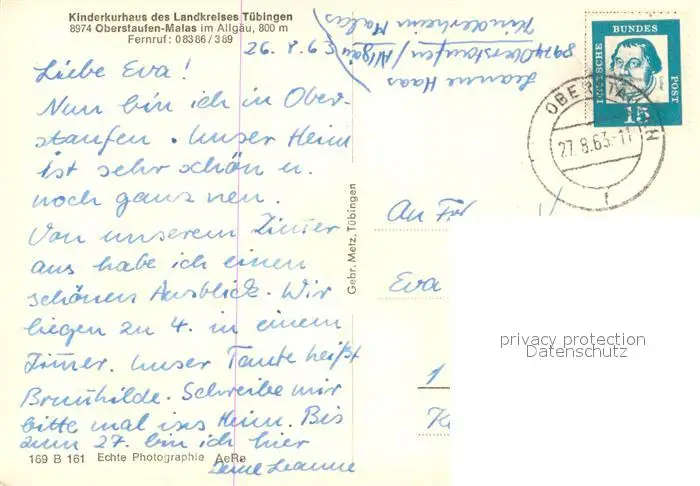 Kinderkurhaus des Landkreises Tübingen
8974 Oberstaufen-Malas im Allgäu, 800 m
Fernruf: 08386/389
26.8.63
Liebe Eva!
Nun bin ich in Ober-
staufen. Unser Heim
ist sehr schön u.
noch ganz neu.
Von unserem Zimmer
aus habe ich einen
schönen Ausblick. Wir
liegen zu 4. in einem
Zimmer. Unser Tante heißt
Brunhilde. Schreibe mir
bitte mal ins Heim. Bis
zum 27. bin ich hier
Deine Leanne
169 B 161 Echte Photographie AeRa
Gebr. Metz, Tübingen
Leanne Haas
8974 Oberstaufen/Allgäu
Kinderheim Malas
DEUTSCHE BUNDES POST
Luther
15
OBERSTAUFEN
27.8.63.-11
f
An
Eva
1
K
privacy protection
Datenschutz